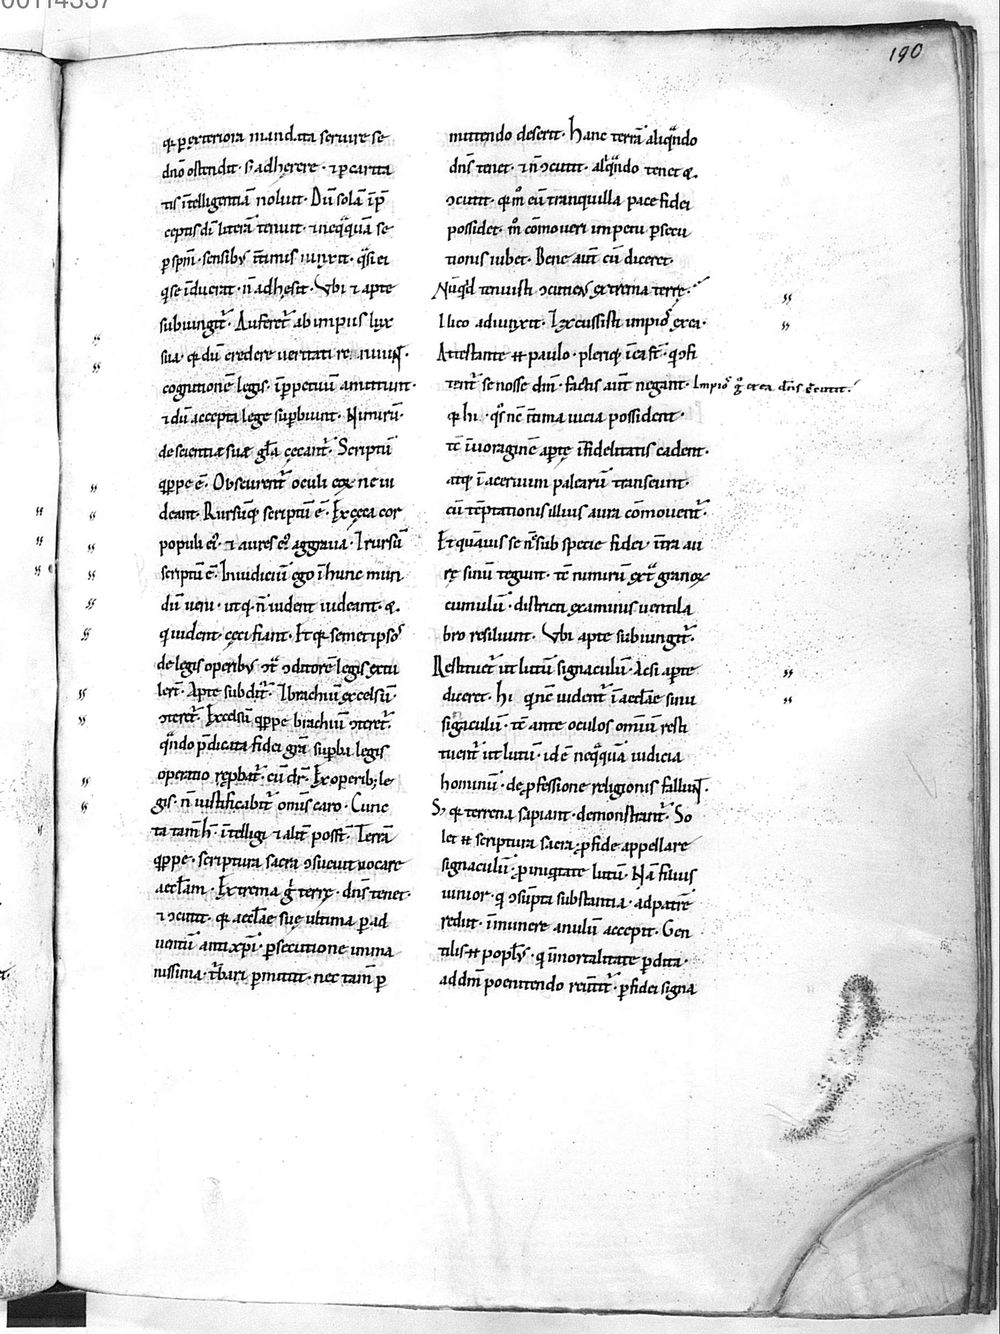 190
q̣ p exteriora mandata seruire se
dn̄o ostendit· s; adherere· ⁊ p carita
tis īn̄telligentiā noluit· Dū solā īp̄
ceptis dī literā tenuit· ⁊ neq̄quā se
p sp̄m· sensibꝰ īntimis iunxit· q̄si ei
q̇ se īduerat· n̄ adhęsit· Vbi ⁊ apte
subiungit᷑· Auferet᷑ ab impiis lux
sua· q̣ dū credere ueritati renuunt·
cognitionē legis· īp̄petuū amittunt·
⁊ dū accepta lege sup̄biunt· Nimirū·
de scientiæ suæ gl̄a cęcant᷑· Scriptū
q̄ppe ē· Obscurent᷑ oculi eoꝝ ne ui
deant· Rursūq; scriptū ē· Excęca cor
populi eiꝰ· ⁊ aures eiꝰ aggraua· Irursū
scriptū ē· In iudiciū ego ī hunc mun
dū ueni· ut q̇ n̄ uident uideant· &
q̇ uident· cęci fiant· Et q̣ semetipsos
de legis operibꝰ ↄt̄ ↄditorē legis extu
lert̄· Apte subdit᷑· ⁊ brachiū excelsū·
ↄteret᷑· Excelsū q̄ppe brachiū ↄteret᷑·
q̄ndo p̄dicata fidei gr̄a sup̄ba legis
operatio rep̄bat᷑· cū dr̄· Ex operib; le
gis· n̄ iustificabit᷑ om̄is caro· Cunc
ta tam̄ h̄· īn̄telligi ⁊ alit̄ posst̄· Terrā
q̄ppe· scriptura sacra ↄsueuit uocare
aecl̄am· Extrema ḡ terrę· dn̄s tenet·
⁊ ↄcutit· q̣ aecl̄ae suę ultima p ad
uentū antixp̄i· p̄secutione inma
nissima· t᷑bari p̄mittit· nec tam̄ p
mittendo deserit· Hanc terrā aliq̄ndo
dn̄s tenet· ⁊ n̄ ↄcutit· alq̄ndo tenet &
ↄcutit· q̣ m̊ eū tranquilla pace fidei
possidet· m̊ cōmoueri impetu p̄secu
tionis iubet· Bene aut̄ cū diceret·
Nūq̇d tenuisti ↄcutiens extrema terrę·
Ilico adiunxit· ⁊ excussisti impios ex ea·
Attestante ⁊ paulo· pleriq; ī ea st̄· q̇ ↄfi
tent᷑ se nosse dm̄· factis aut̄ negant· Impios ḡ ex ea dn̄s excutit·
q̣ hi· q̇s nc̄ īntima uicia possident·
tc̄ ī uoraginē apte īfidelitatis cadent·
atq; ī aceruum palearū transeunt·
cū tēptationis illius aura cōmouent᷑·
Et quāuis se nc̄ sub specie fidei· īntra au
rę sinū tegunt· tc̄ nimirū ext᷑ granoꝝ
cumulū· districti examinis uentila
bro resiliunt· Vbi apte subiungit᷑·
Restituet᷑ ut lutū signaculū· Acsi apte
diceret· hi q̇ nc̄ uident᷑ ī aecl̄ae sinu
signaculū· tc̄ ante oculos omniū resti
tuent᷑ ut lutū· id ē neq̄quā iudicia
hominū· de p̄fessione religionis fallunt·
S; q̣ terrena sapiant· demonstrant᷑· So
let ⁊ scriptura sacra· p fide appellare
signaculū· p iniquitate lutū· Nā filius
iunior· q̇ ↄsūpta substantia· ad patrē
rediit· īmunere anulū accepit· Gen
tilis ⁊ popl̄s· q̇ īmortalitate p̄dita·
ad dm̄ poenitendo reūtit᷑· p fidei signa